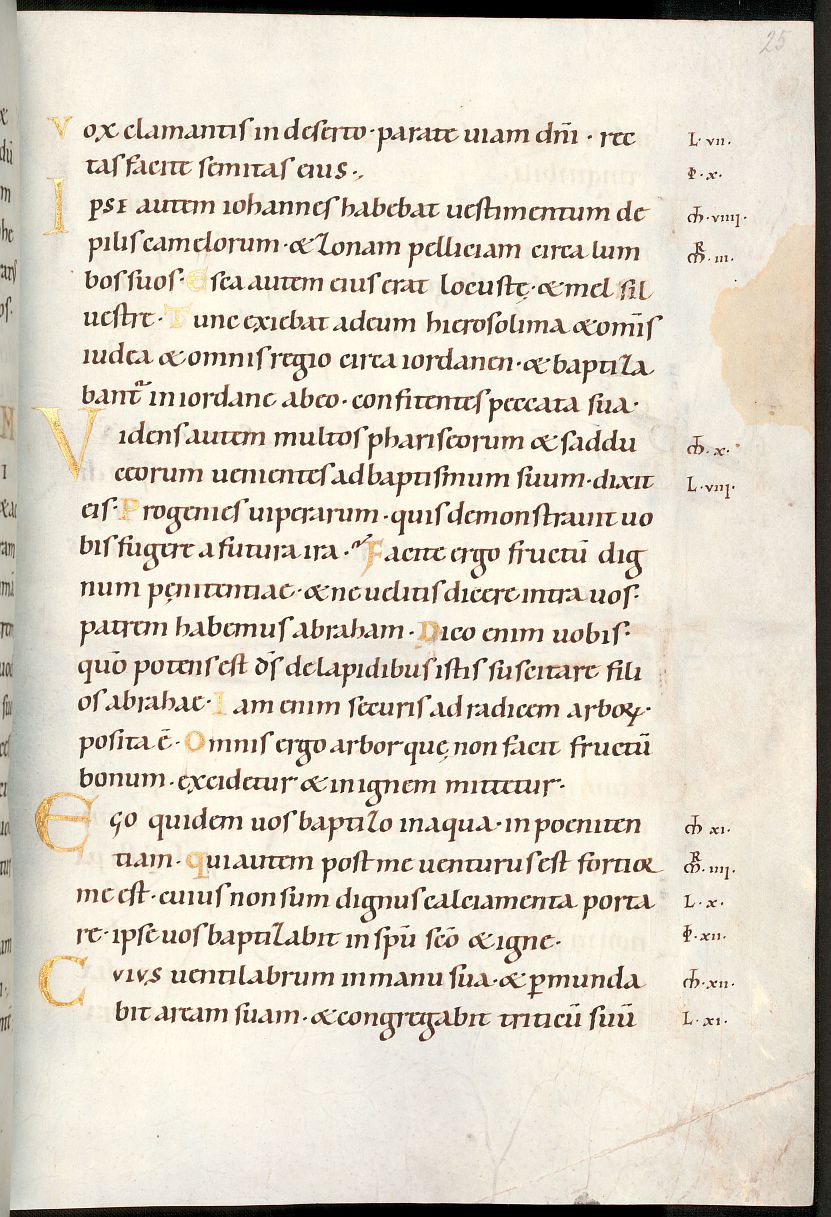 25
Vox clamantis in deserto· parate uiam dñi · rec L· vii·
tas facite semitas eius·, Φ· x·
IPSE autem iohannes habebat uestimentum de m̄· viiii·
pilis camelorum· & zonam pelliciam circa lum m̄R· iii·
bos suos· Esca autem eius erat locustę· & mel sil
uestre· Tunc exiebat ad eum hierosolima & om̄is
iudea & omnis regio circa iordanen· & baptiza
bant᷑ in iordane ab eo· confitentes peccata sua·
Videns autem multos phariseorum & saddu m̄· x·
ceorum uenientes ad baptismum suum· dixit L· viii·
eis· Progenies uiperarum· quis demonstrauit uo
bis fugere a futura ira· Facite ergo fructū dig
num pęnitentiae· & ne uelitis dicere intra uos·
patrem habemus abraham· Dico enim uobis·
quō potens est d̄s de lapidibus istis suscitare fili
os abrahae· Iam enim securis ad radicem arboꝝ·
posita ē· Omnis ergo arbor quę non facit fructū
bonum· excidetur & in ignem mittetur·
Ego quidem uos baptizo in aqua· in poeniten m̄ xi·
tiam· qui autem post me uenturus est fortior m̄R· iiii·
me est· cuius non sum dignus calciamenta porta L· x·
re· ipse uos baptizabit in spū scō & igne· Φ· xii·
CVIVS uentilabrum in manu sua· & ꝑmunda m̄· xii·
bit aream suam· & congregabit triticū suū L· xi·